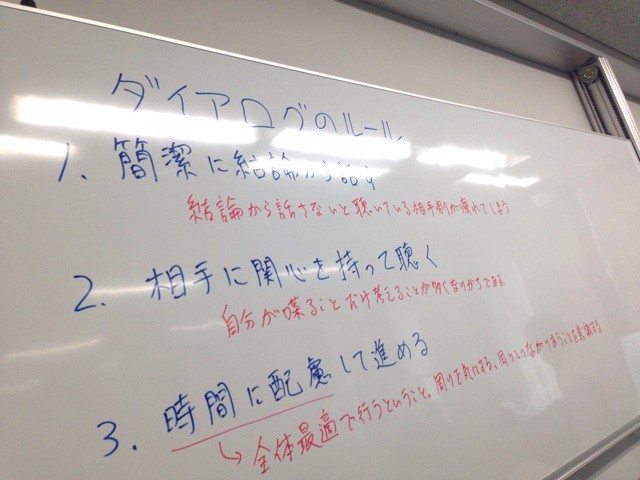 ダイアログのルール
1. 簡潔に結論から話す
結論から話さないと聴いている相手側が疲れてしまう
2. 相手に関心を持って聴く
自分が喋ることだけ考えることが多くなりがちである
3. 時間に配慮して進める
↳全体最適で行うということ。周りを気にする、周りといながり